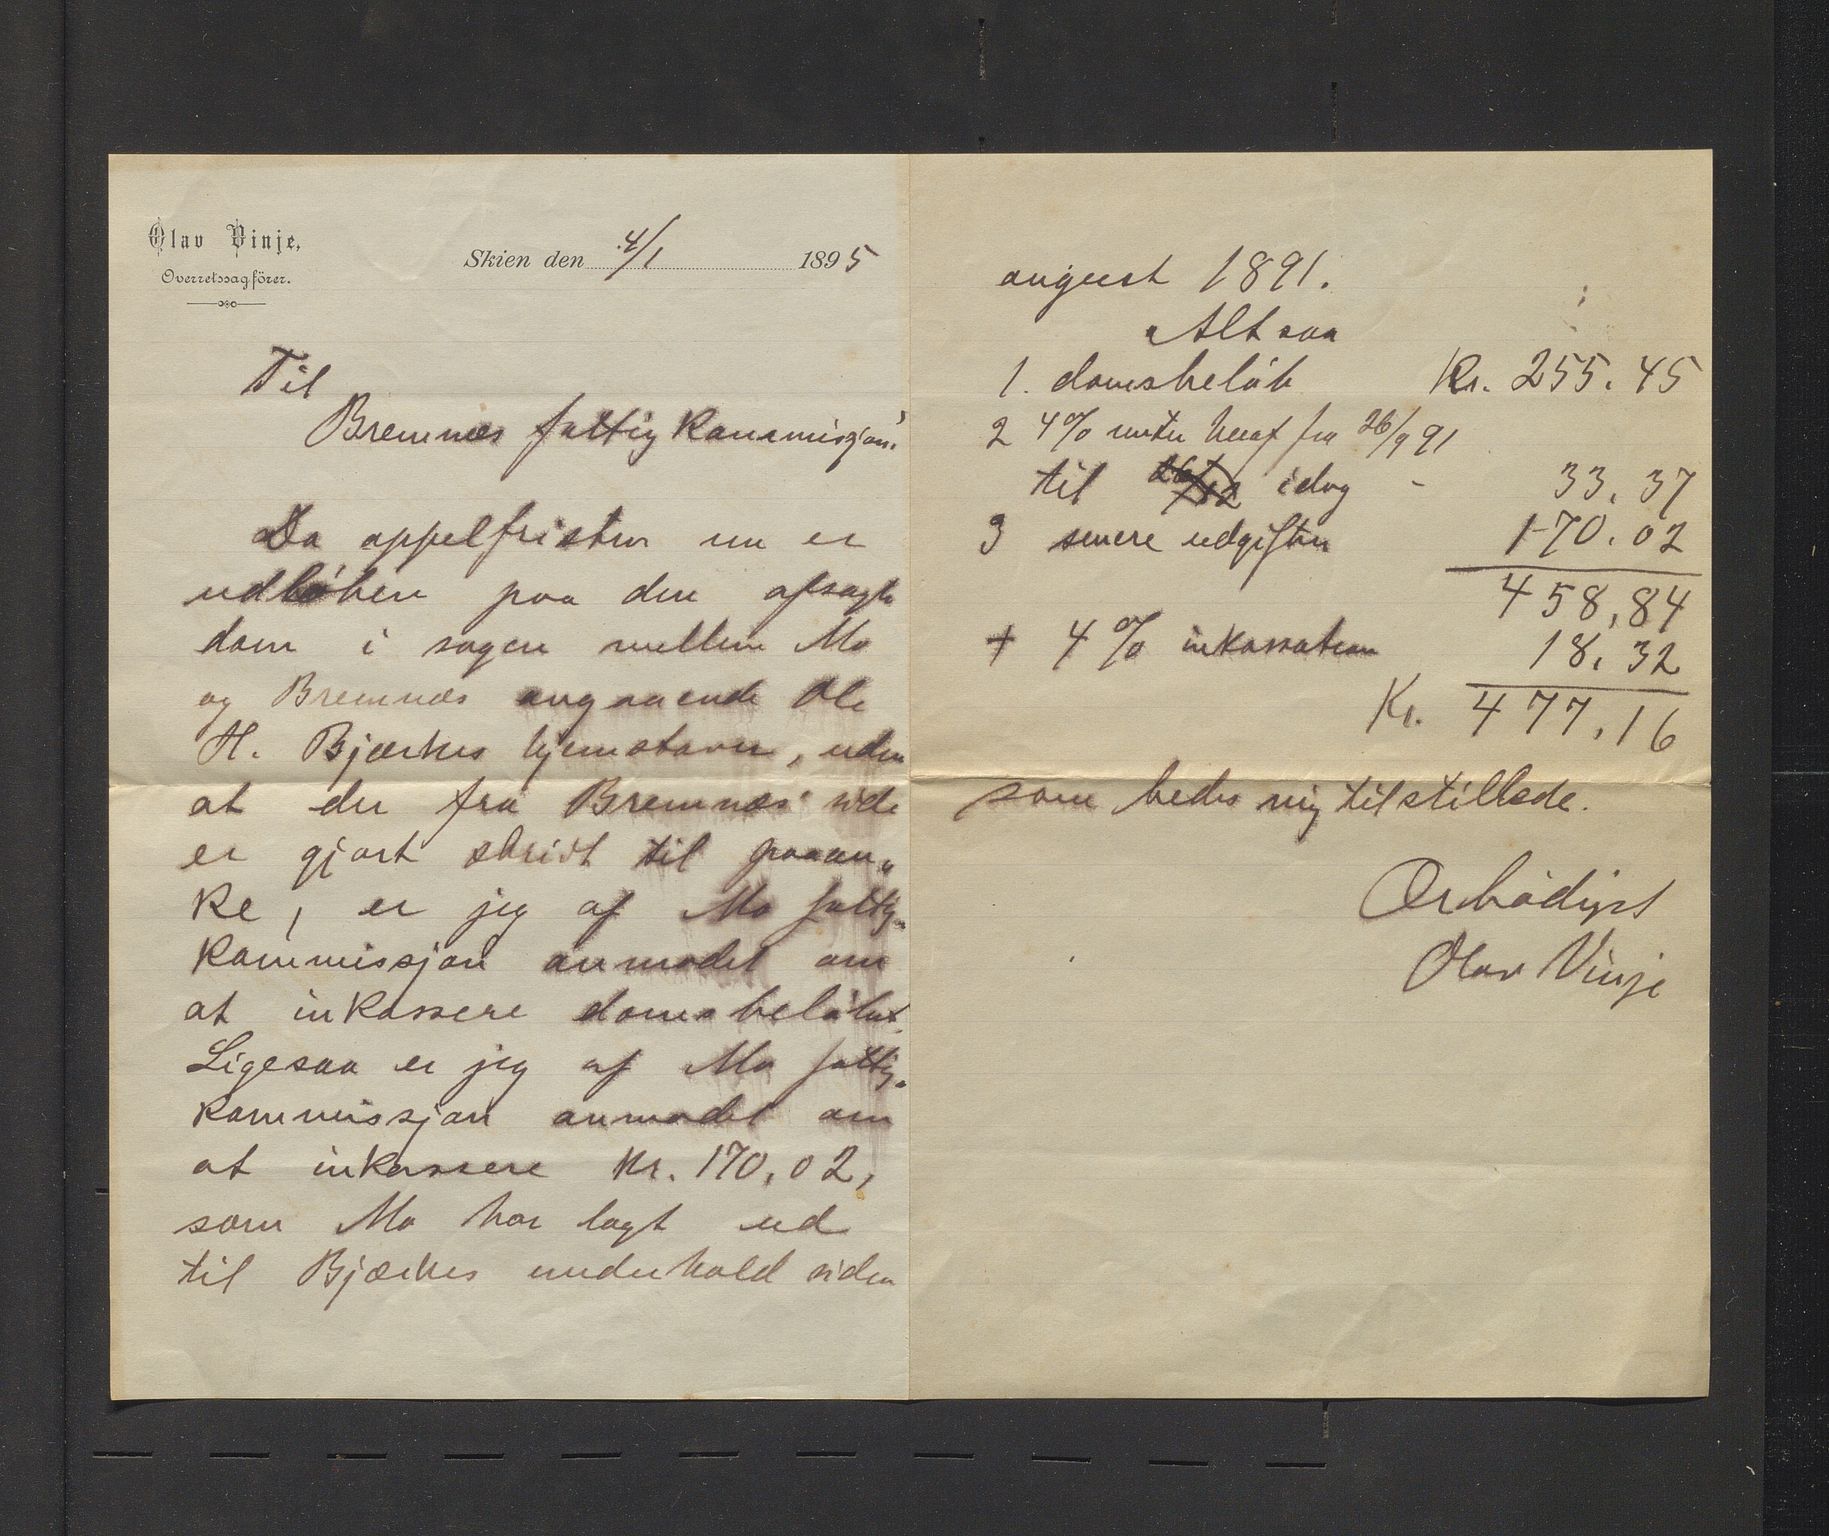 Olav Vinje,
Overretssagförer.
Skien den 4/1 1895
Til
Bremnæs fattigkommissjon.
Da appelfristen nu er
udlöben paa den afsagte
dom i sagen mellem Mo
og Bremnæs angaaende Ole
H. Bjærkes hjemstavn, uden
at der fra Bremnæs side
er gjort skridt til paaan„
ke, er jeg af Mo fattig„
kommissjon anmodet om
at inkassere domsbelöbet.
Ligesaa er jeg af Mo fattig„
kommissjon anmodet om
at inkassere Kr. 170,02,
som Mo har lagt ud
til Bjærkes underhold siden
august 1891.
Altsaa
1. domsbelöb Kr. 255.45
2 4% renter heraf fra 26/9 91
til idag - 33.37
3 senere udgifter 170.02
458,84
+ 4% inkassation 18.32
Kr. 477.16
som bedes mig tilstillede.
Ærbödigst
Olav Vinje